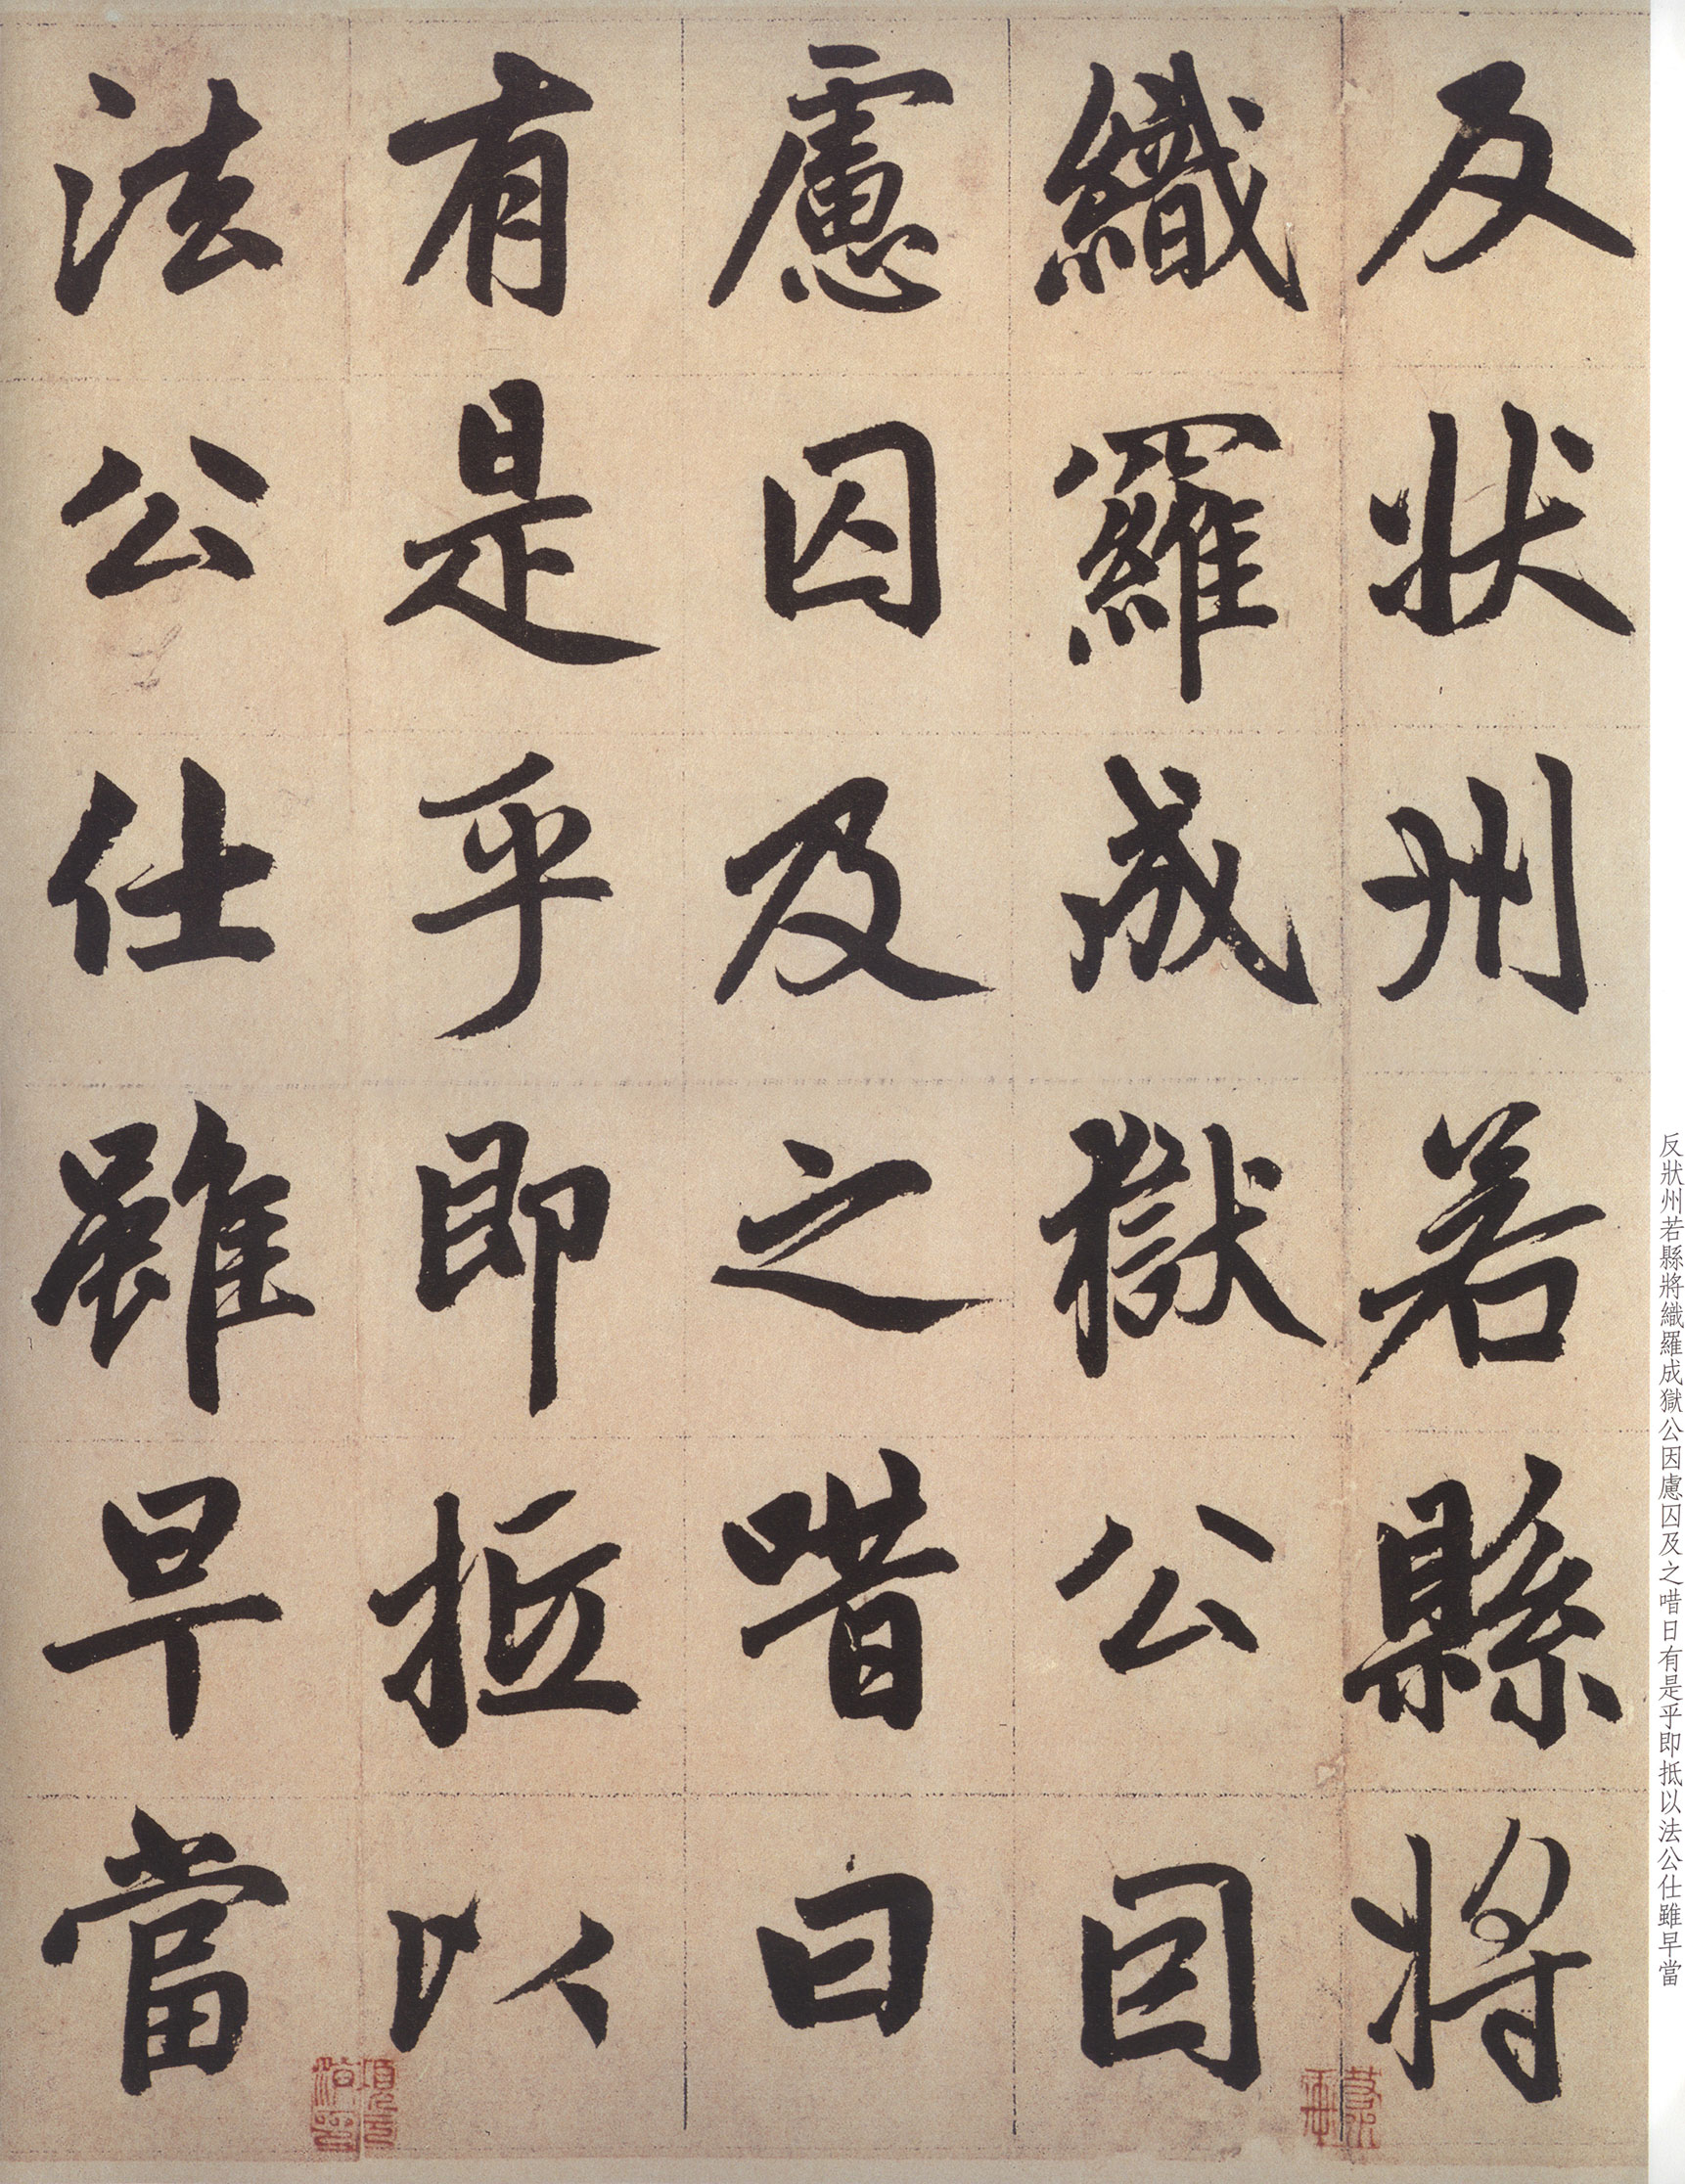 反狀州若縣將
織羅成獄公因
慮囚及之唶曰
有是乎即抵以
法公仕雖早當
反狀州若縣將織羅成獄公因慮囚及之唶日有是乎即抵以法公仕雖早當